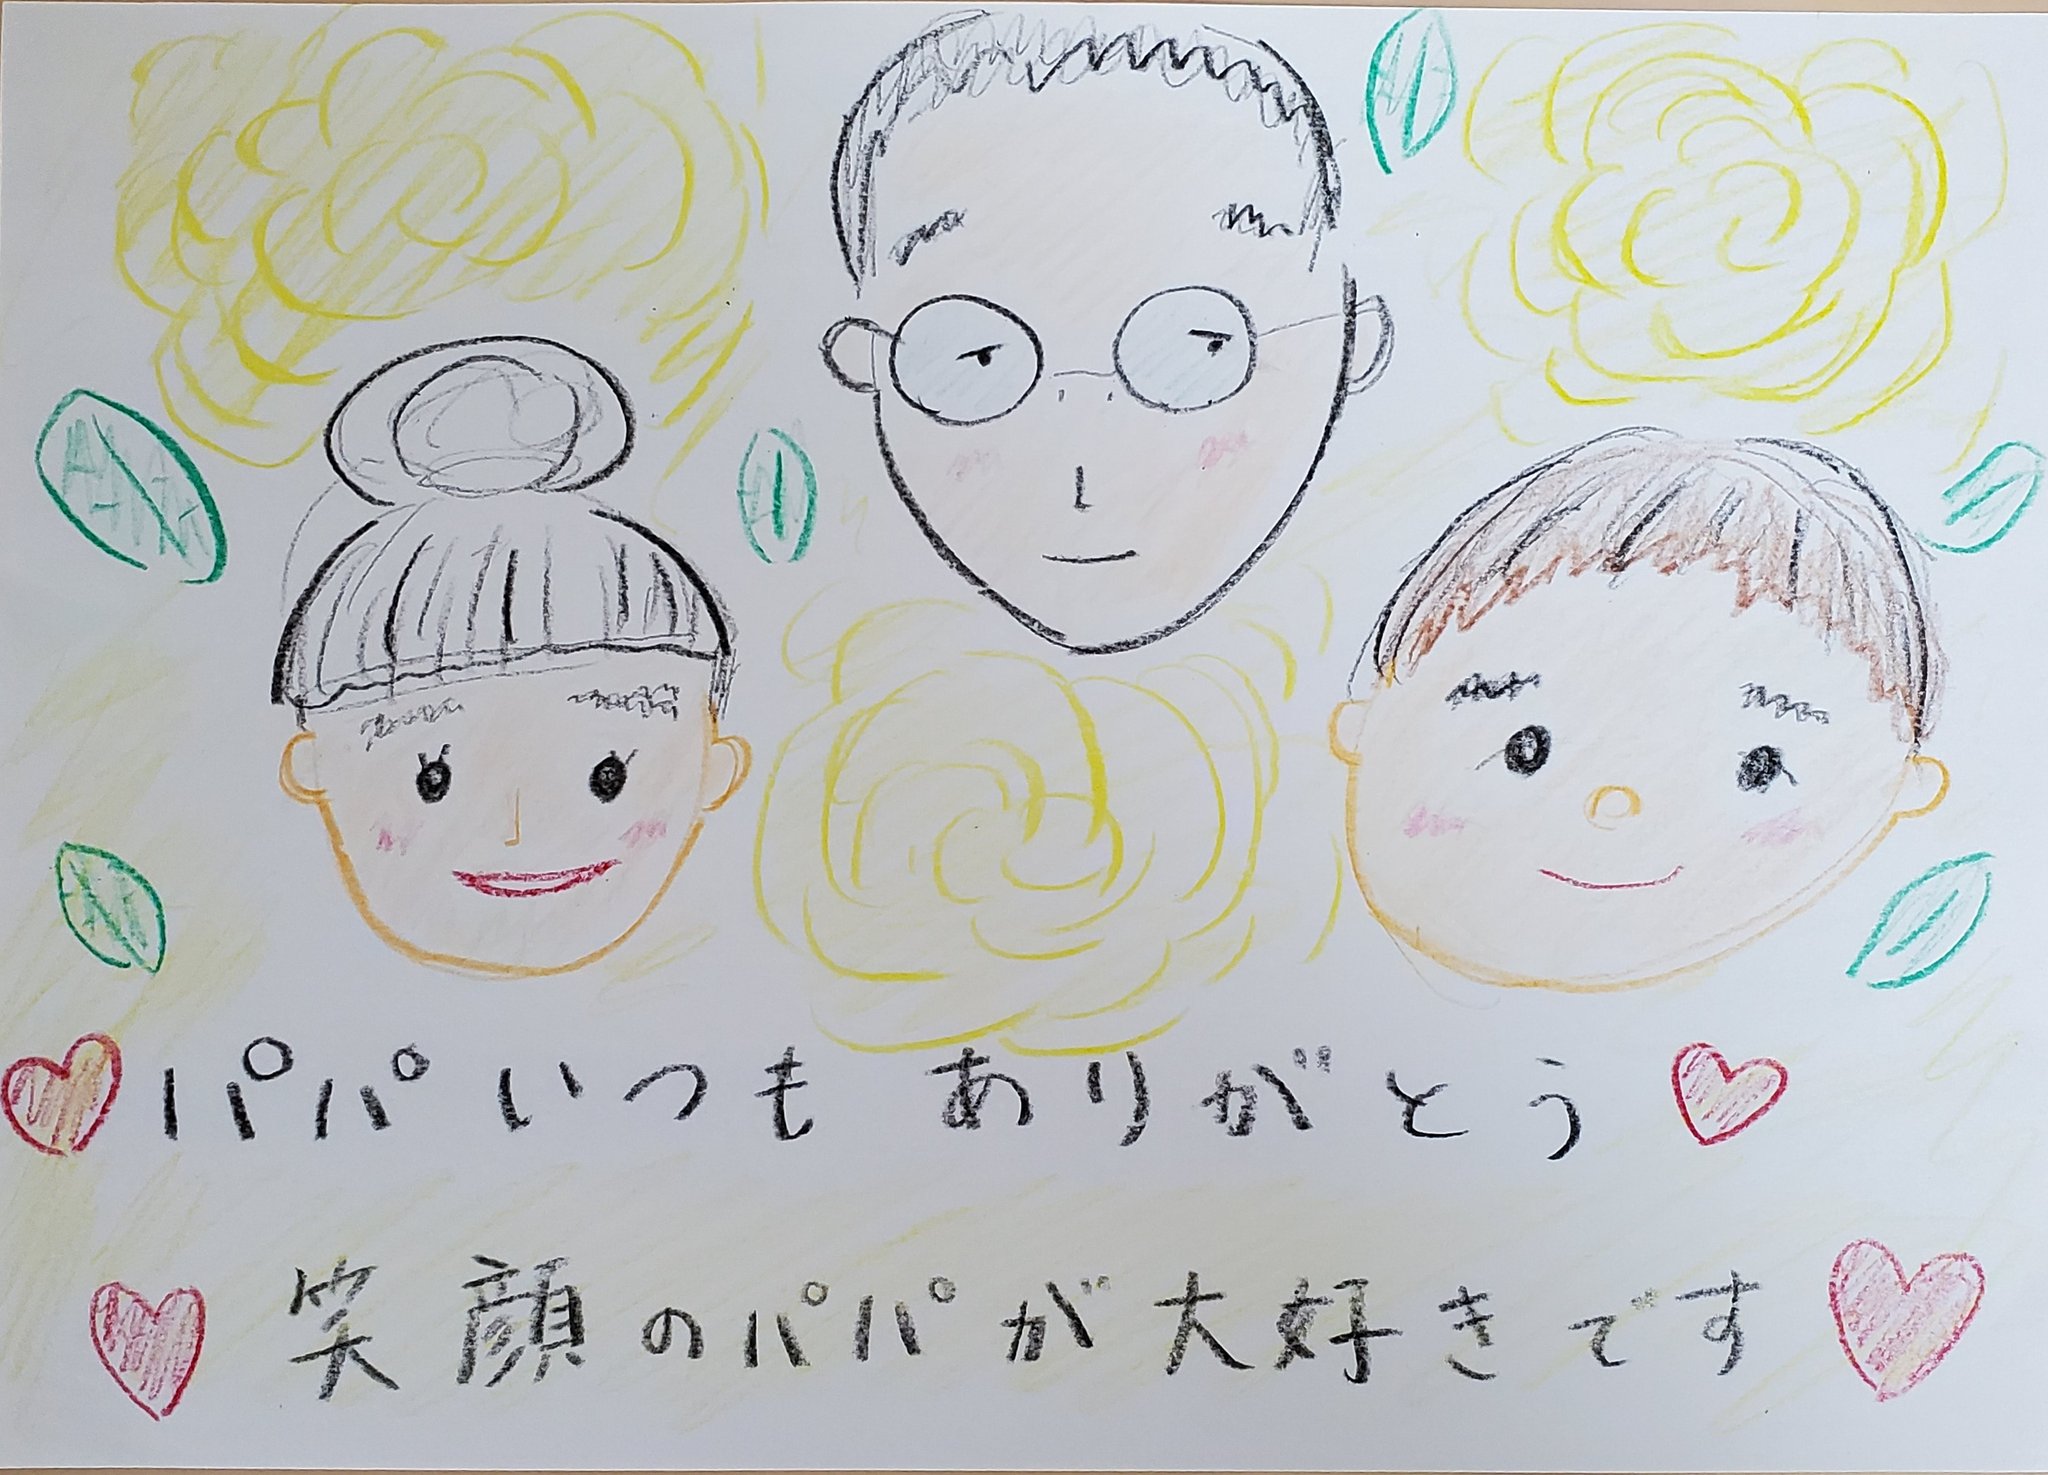 パパいつも ありがとう
笑顔のパパが大好きです